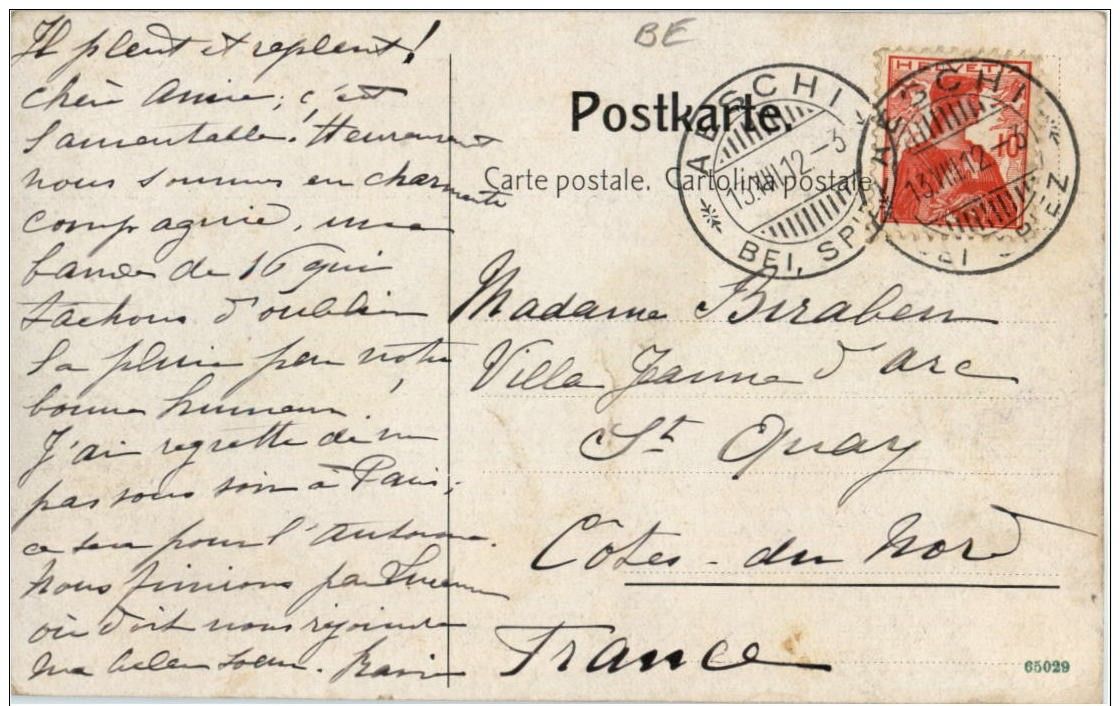 BE
Postkarte.
Carte postale. Cartolina postale.
HELVETIA
10
AESCHI
13.VIII.12.-3
BEI, SPIEZ
AESCHI
13.VIII.12.-3
BEI SPIEZ
Il pleut et repleut!
chère Amie; c'est
lamentable! Heureusement
nous sommes en charmante
compagnie, une
bande de 16 qui
tâchons d'oublier
la pluie par notre
bonne humeur!
J'ai regretté de ne
pas vous voir à Paris;
ce sera pour l'Automne.
Nous finirons par Lucerne
où doit nous rejoindre
ma belle soeur.
Madame Biraben
Villa Jeanne d'Arc
St Quay
Côtes-du Nord
France
65029